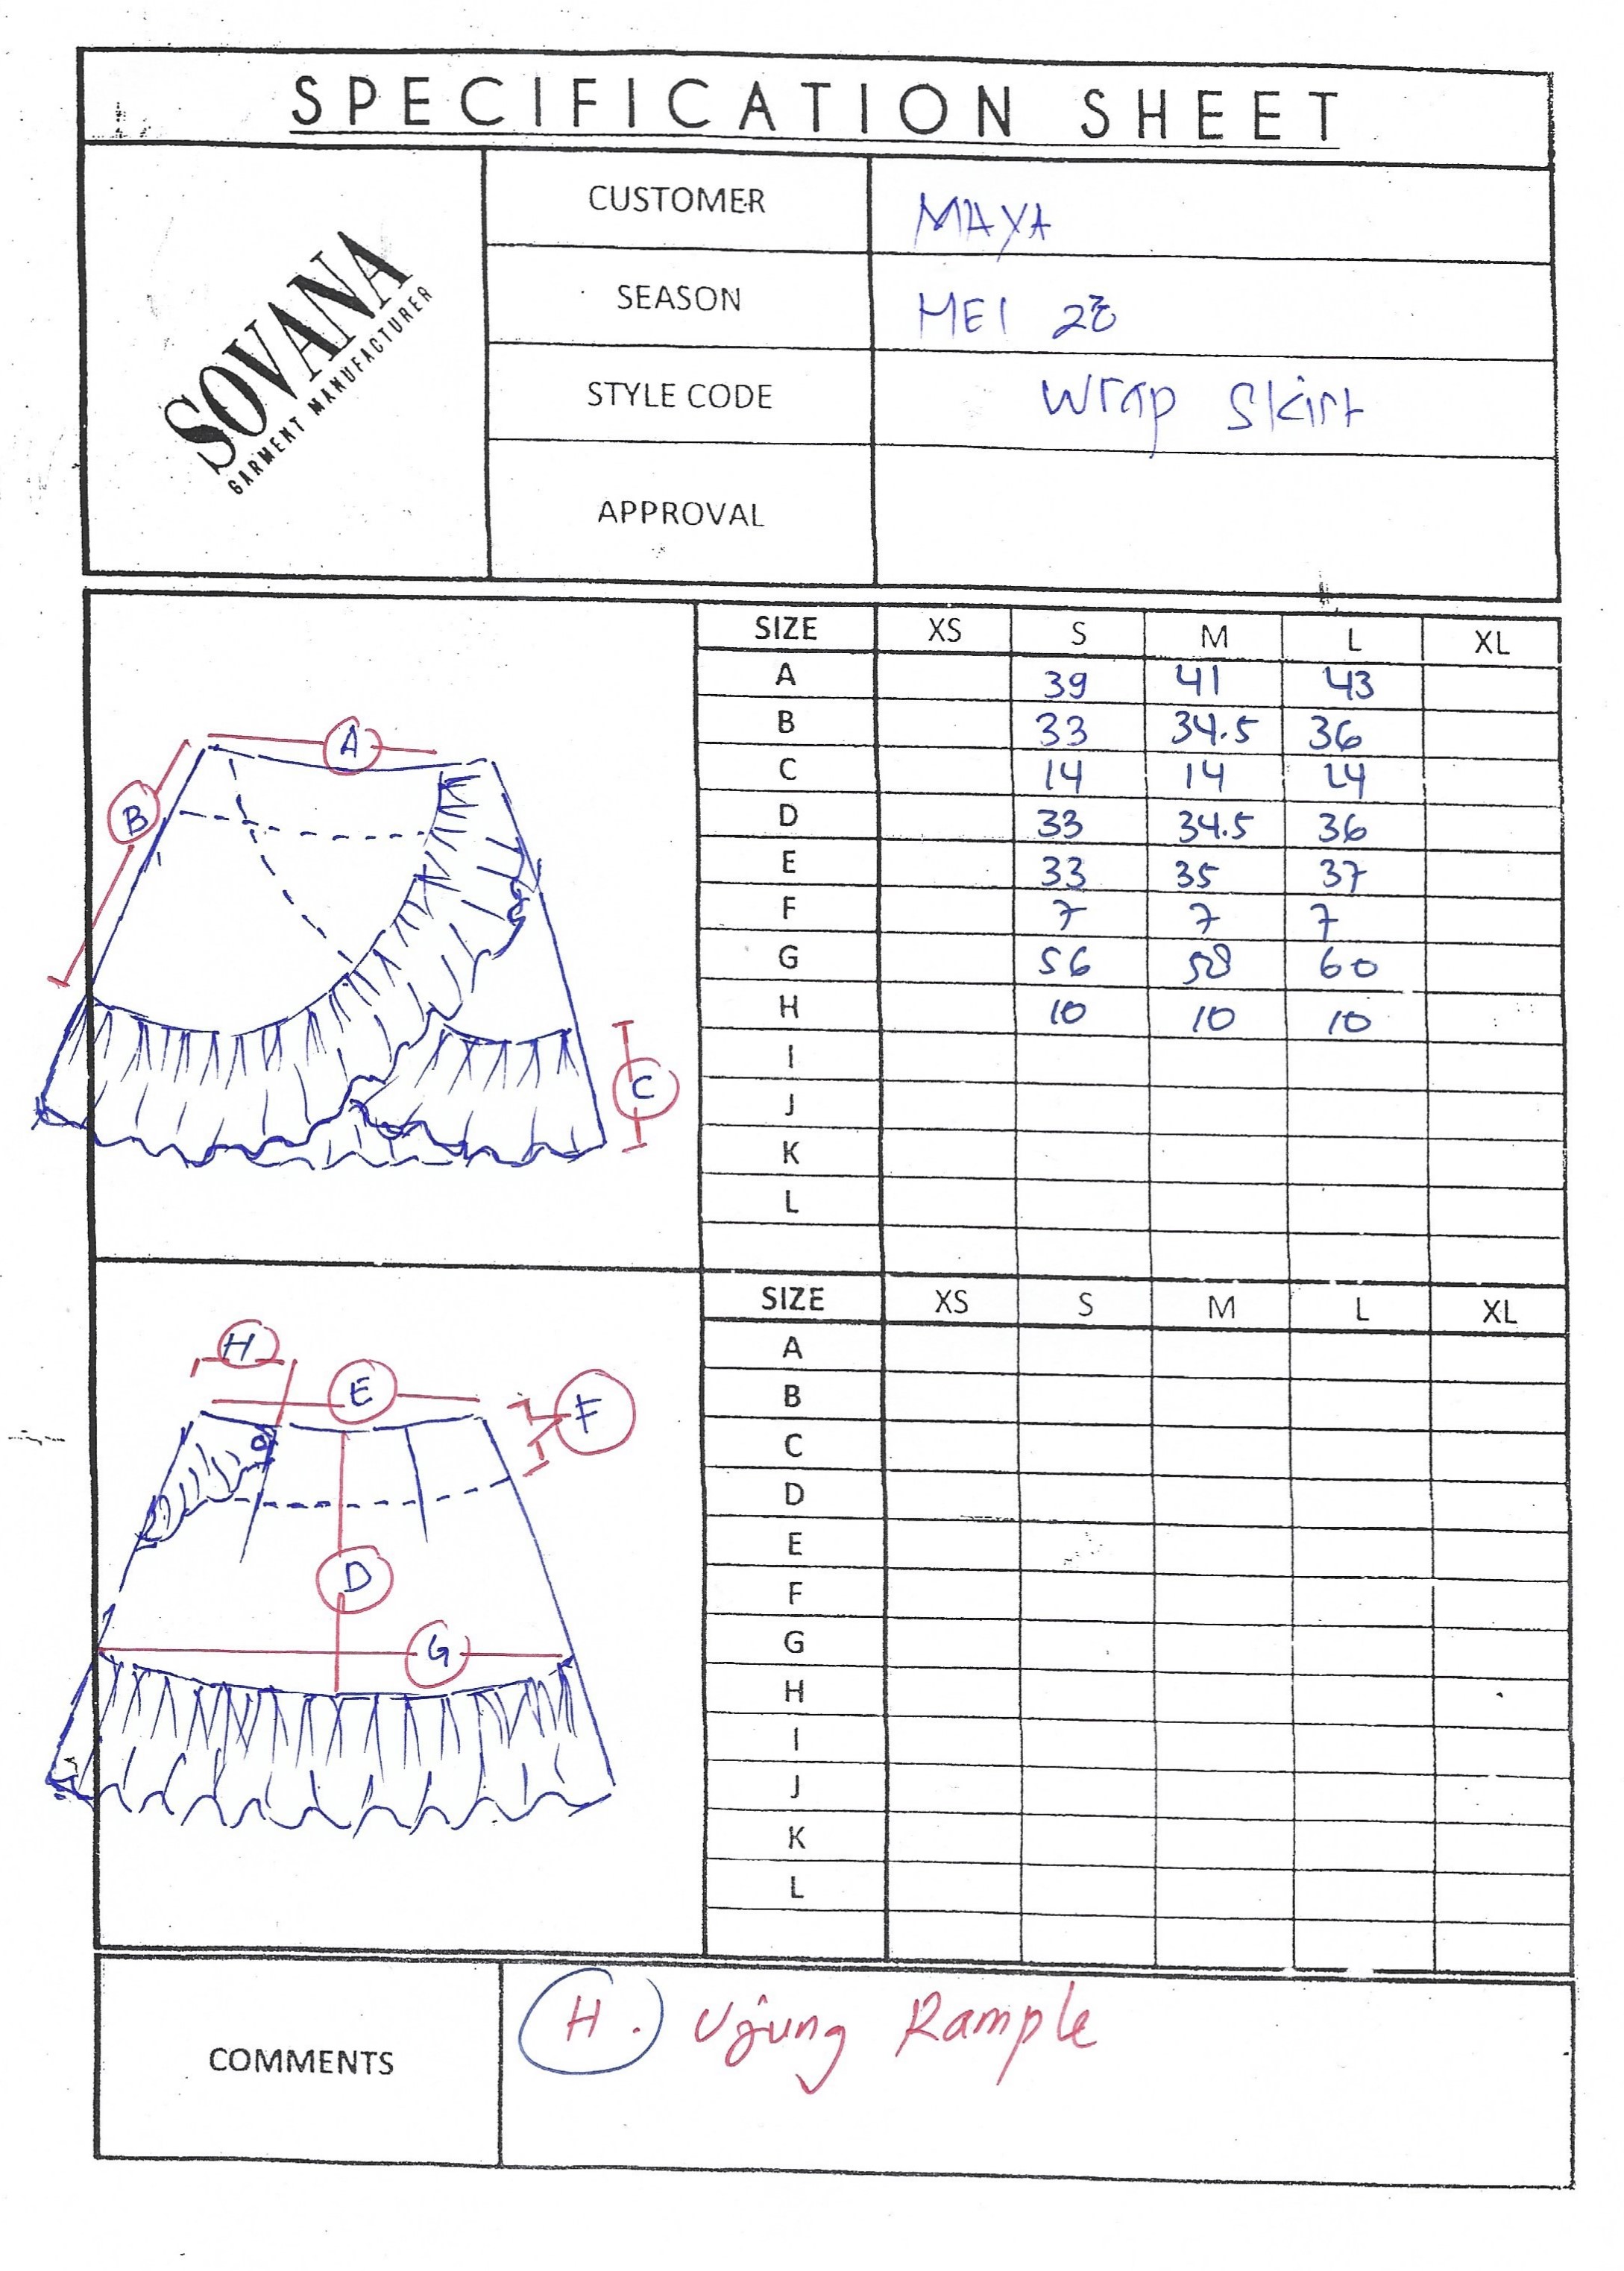 SPECIFICATION SHEET
SOVANA
GARMENT MANUFACTURER
CUSTOMER MAYA
SEASON MEI
STYLE CODE Wrap Skirt
APPROVAL
SIZE XS S M L XL
A 39 41 43
B 33 34.5 36
C 14 14 14
D 33 34.5 36
E 33 35 37
F 7 7 7
G 56 58 60
H 10 10 10
I
J
K
L
A
B
C
SIZE XS S M L XL
A
B
C
D
E
F
G
H
I
J
K
L
H
E
F
D
G
COMMENTS H. Ujung Rample